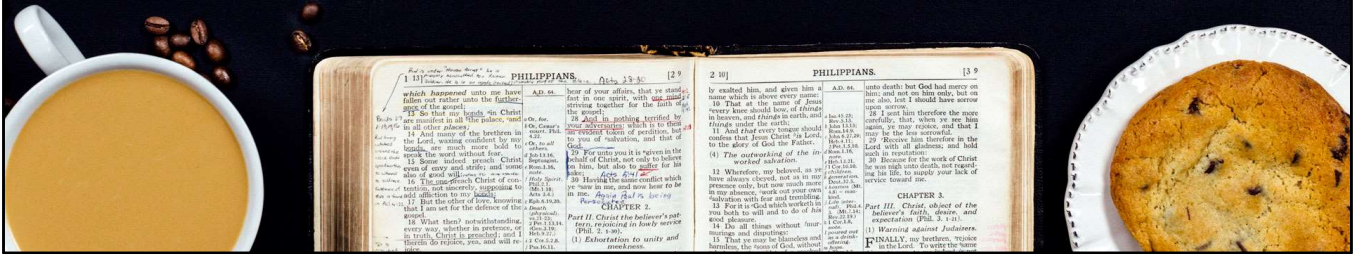 1 13]
PHILIPPIANS.
Acts 28-30
[2 9
which happened unto me have
fallen out rather unto the further-
ance of the gospel;
13 So that my bonds in Christ
are manifest in all the palace, and
in all other places;
14 And many of the brethren in
the Lord, waxing confident by my
bonds, are much more bold to
speak the word without fear.
15 Some indeed preach Christ
even of envy and strife; and some
also of good will:
16 The one preach Christ of con-
tention, not sincerely, supposing to
add affliction to my bonds:
17 But the other of love, knowing
that I am set for the defence of the
gospel.
18 What then? notwithstanding,
every way, whether in pretence, or
in truth, Christ is preached; and I
therein do rejoice, yea, and will re-
A.D. 64.
Or, for.
Or, Cæsar's
court. Phil.
4.22.
Or, to all
others.
John 13.16,
Septuagint.
Rom.1.16,
note.
Holy Spirit.
Phil.2.1.
Eph.6.19,20.
Death
(physical).
hear of your affairs, that ye stand
fast in one spirit, with one mind
striving together for the faith of
the gospel;
28 And in nothing terrified by
your adversaries: which is to them
an evident token of perdition, but
to you of salvation, and that of
God.
29 For unto you it is given in the
behalf of Christ, not only to believe
on him, but also to suffer for his
sake;
Acts 5:41
30 Having the same conflict which
ye saw in me, and now hear to be
in me.
Again Paul is being
CHAPTER 2.
Part II. Christ the believer's pat-
tern, rejoicing in lowly service
(Phil. 2. 1-30).
(1) Exhortation to unity and
meekness.
2 10]
PHILIPPIANS.
[3 9
ly exalted him, and given him a
name which is above every name:
10 That at the name of Jesus
every knee should bow, of things
in heaven, and things in earth, and
things under the earth;
11 And that every tongue should
confess that Jesus Christ is Lord,
to the glory of God the Father.
(4) The outworking of the in-
worked salvation.
12 Wherefore, my beloved, as ye
have always obeyed, not as in my
presence only, but now much more
in my absence, work out your own
salvation with fear and trembling.
13 For it is God which worketh in
you both to will and to do of his
good pleasure.
14 Do all things without mur-
murings and disputings:
15 That ye may be blameless and
harmless, the sons of God, without
A.D. 64.
unto death: but God had mercy on
him; and not on him only, but on
me also, lest I should have sorrow
upon sorrow.
28 I sent him therefore the more
carefully, that, when ye see him
again, ye may rejoice, and that I
may be the less sorrowful.
29 Receive him therefore in the
Lord with all gladness; and hold
such in reputation:
30 Because for the work of Christ
he was nigh unto death, not regard-
ing his life, to supply your lack of
service toward me.
CHAPTER 3.
Part III. Christ, object of the
believer's faith, desire, and
expectation (Phil. 3. 1-21).
(1) Warning against Judaizers.
FINALLY, my brethren, rejoice
in the Lord. To write the same